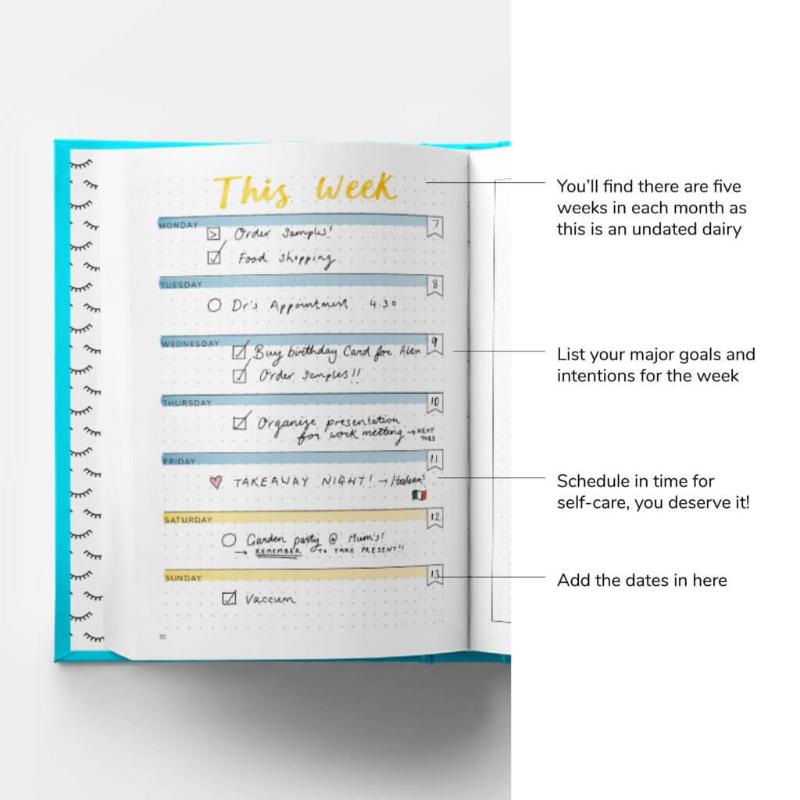 This Week
MONDAY 7
Order Samples!
Food Shopping
TUESDAY 8
Dr's Appointment 4.30
WEDNESDAY 9
Buy birthday Card for Alex
Order Samples!!
THURSDAY 10
Organize presentation
for work meeting → NEXT
TUES
FRIDAY 11
TAKEAWAY NIGHT! → Italian!
SATURDAY 12
Garden party @ Mum's!
→ REMEMBER TO TAKE PRESENT!!
SUNDAY 13
Vaccum
30
You'll find there are five
weeks in each month as
this is an undated dairy
List your major goals and
intentions for the week
Schedule in time for
self-care, you deserve it!
Add the dates in here